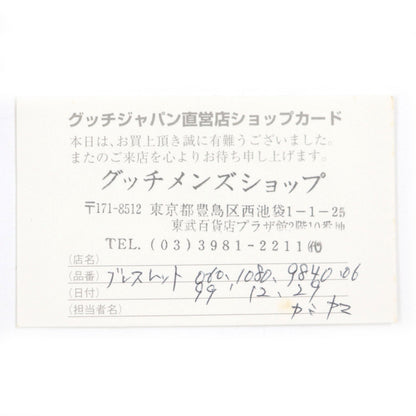 グッチジャパン直営店ショップカード
本日は、お買上頂き誠に有難うございました。
またのご来店を心よりお待ち申し上げます。
グッチメンズショップ
〒171-8512 東京都豊島区西池袋1-1-25
東武百貨店プラザ館2階10番地
TEL.(03)3981-2211㈹
(店名)
(品番) ブレスレット 060.1080.9840.06
(日付) 99.12.29
(担当者名) カミヤマ